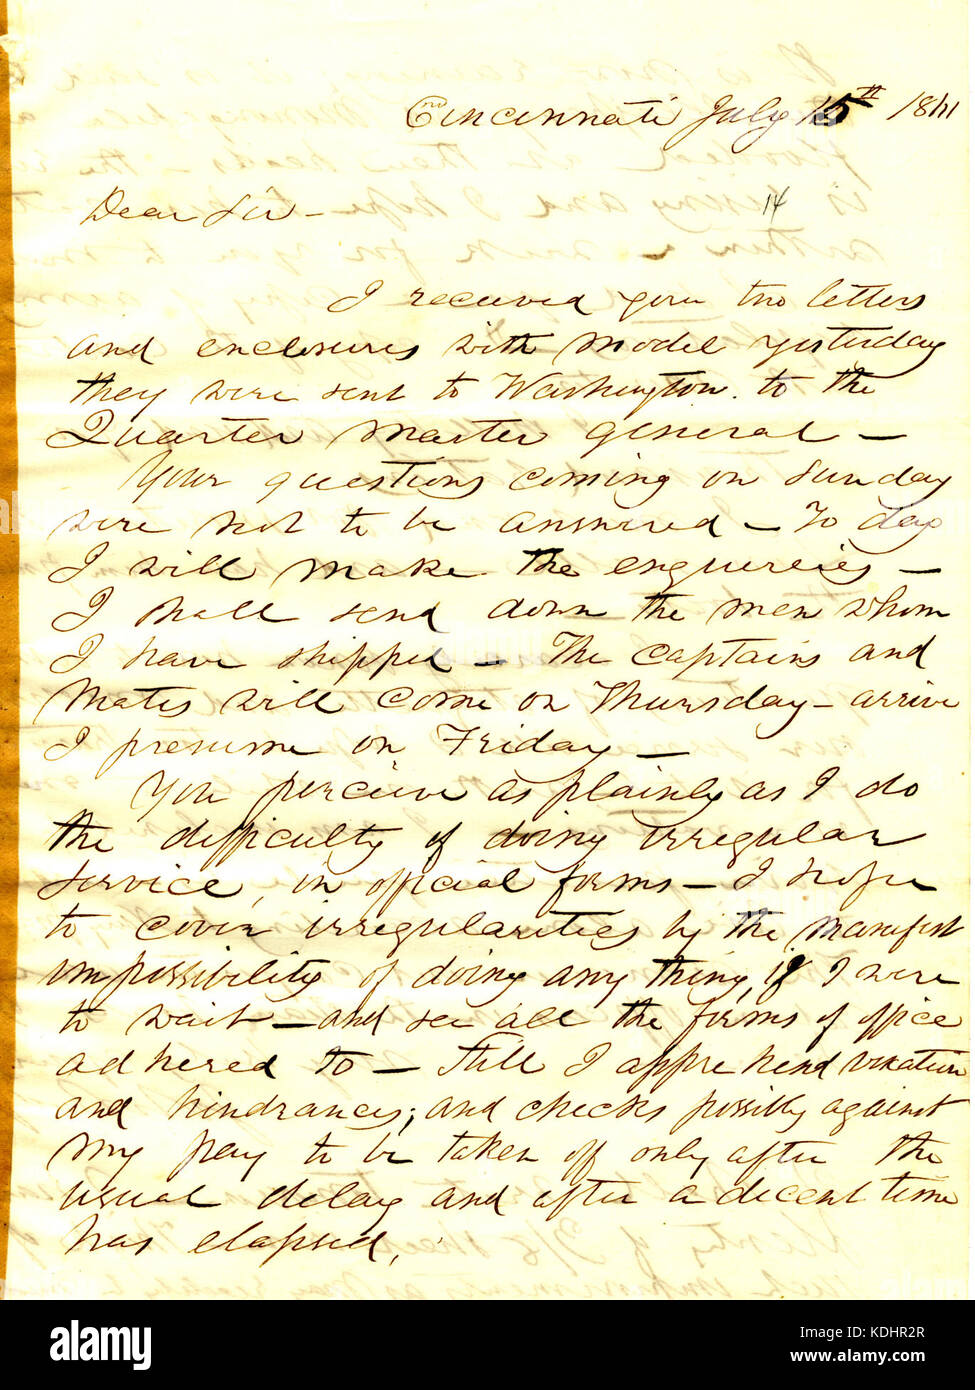 Cincinnati July 15th 1861
Dear Sir - 14
I received your two letters
and enclosures with model yesterday
they were sent to Washington. to the
Quarter Master general -
Your questions coming on Sunday
were not to be answered - To day
I will make the enquireies -
I shall send down the men whom
I have shipped - The Captains and
Mates will come on Thursday - arrive
I presume on Friday -
You perceive as plainly as I do
the difficulty of doing irregular
service, in official forms - I hope
to cover irregularities by the manifest
impossibility of doing any thing, if I were
to wait - and see all the forms of office
adhered to - Still I apprehend vexation
and hindrances; and checks possibly against
my pay to be taken off only after the
usual delay and after a decent time
has elapsed,
alamy
Image ID: KDHR2R
www.alamy.com